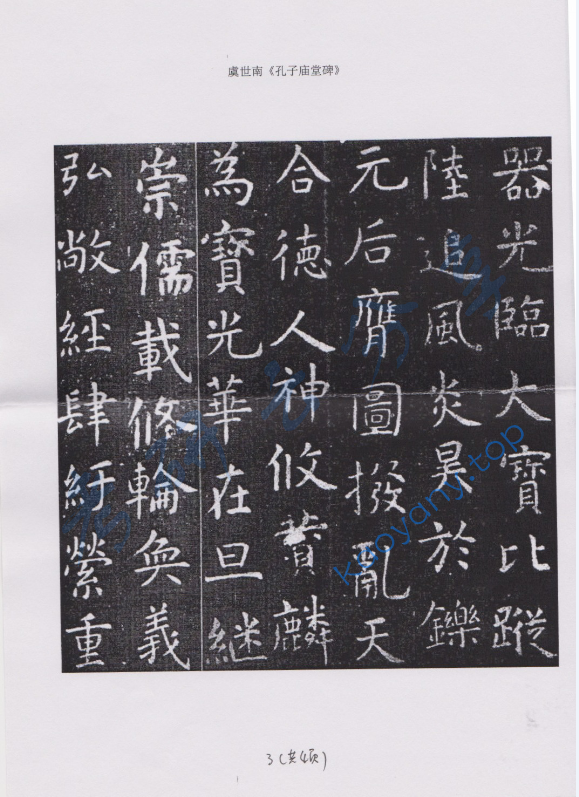 虞世南《孔子庙堂碑》
器光臨大寶比蹤
陸追風炎昊於鑠
元后膺圖撥亂天
合德人神攸贊麟
為寶光華在旦継
崇儒載修輪奐義
弘敞經肆紆縈重
kaoyany.top
3(共4页)